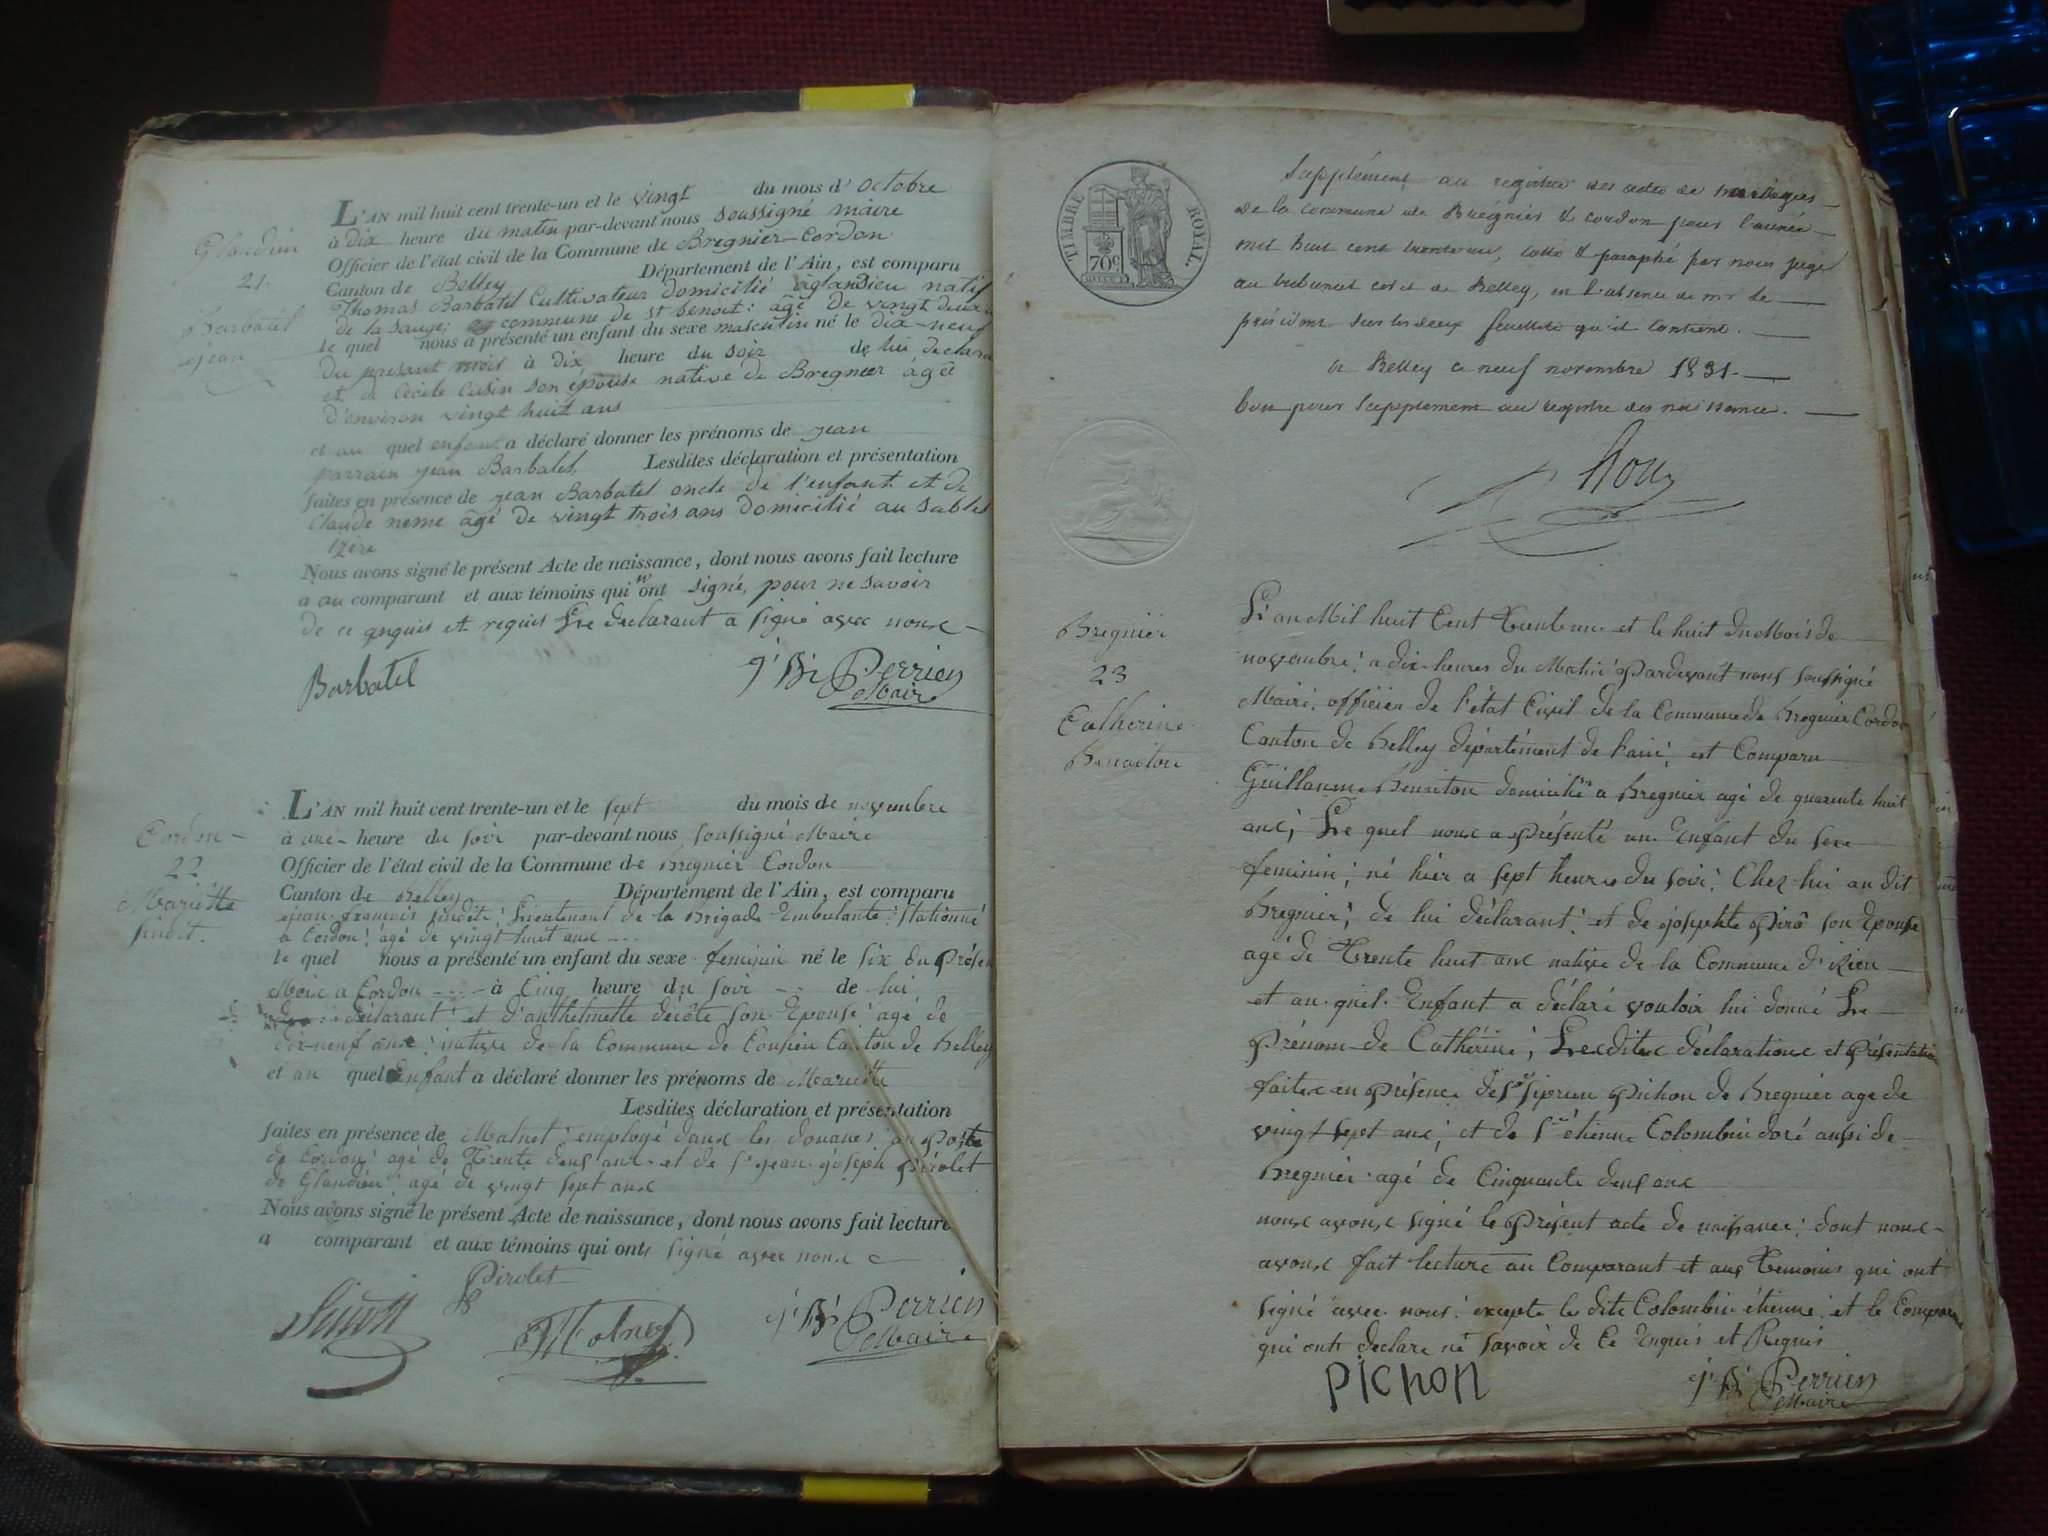 Glandieu
21.
Barbatel
jean
L'AN mil huit cent trente-un et le vingt du mois d'octobre
à dix heure du matin par-devant nous soussigné maire
Officier de l'état civil de la Commune de Bregnier-Cordon
Canton de Belley Département de l'Ain, est comparu
Thomas Barbatel Cultivateur domicilié àglandieu natif
de la sauge; commune de st benoit: âgé de vingt deux
le quel nous a présenté un enfant du sexe masculin né le dix-neuf
du present mois à dix heure du soir de lui declara
et de Cecile Cusin son épouse native de Bregnier agée
d'environ vingt huit ans
et au quel enfant a déclaré donner les prénoms de jean
parrain jean Barbatel, Lesdites déclaration et présentation
faites en présence de jean Barbatel oncle de l'enfant et de
Claude neme âgé de vingt trois ans domicilié au sables
Izère
Nous avons signé le présent Acte de naissance, dont nous avons fait lecture
a au comparant et aux témoins qui n'ont signé, pour ne savoir
de ce enquis et requis Le declarant a signé avec nous
Barbatel
j' Bt Perrien
Maire
Cordon
22
Mariette
L'AN mil huit cent trente-un et le sept du mois de novembre
à une heure du soir par-devant nous soussigné Maire
Officier de l'état civil de la Commune de Bregnier Cordon
Canton de Belley Département de l'Ain, est comparu
jean françois Lieutenant de la Brigade Embulante stationné
a Cordon; agé de vingt huit ans
le quel nous a présenté un enfant du sexe feminin né le six du Présen
Mois a Cordon à Cinq heure du soir de lui
déclarant et d'anthelmette décôte son Epouse agé de
dix-neuf ans; native de la Commune de Canton de Belley
et au quel Enfant a déclaré donner les prénoms de Mariette
Lesdites déclaration et présentation
faites en présence de Malnet employé dans les douanes au Poste
de Cordon agé de Trente deux ans et de Sr jean joseph Pirolet
de Glandieu agé de vingt sept ans
Nous avons signé le présent Acte de naissance, dont nous avons fait lecture
a comparant et aux témoins qui ont signé avec nous
Pirolet
j' Bt Perrien
Maire
TIMBRE ROYAL
70c
Supplément au registre des actes de mariages
de la commune de Brégnier & cordon pour l'année
mil huit cent trente un, cotté & paraphé par nous juge
au tribunal civil de Belley, en l'absence de mr le
président sur les deux feuillets qu'il contient.
a Belley ce neuf novembre 1831.
bon pour supplement au registre des naissance.
Bregnier
23
Catherine
Benaiton
L'an Mil huit Cent Trente un et le huit du Mois de
novembre; a dix heures du Matin Pardevant nous soussigné
Maire, officier de l'état Civil de la Commune de Bregnier Cordon
Canton de Belley département de l'ain; est Comparu
Guillaume Benaiton domicilié a Bregnier agé de quarente huit
ans; Le quel nous a Présenté un Enfant du sexe
feminin; né hier a sept heures du soir; Chez lui au dit
Bregnier; de lui déclarant; et de josephte Pirô son Epouse
agé de Trente huit ans native de la Commune d'
et au quel Enfant a déclaré vouloir lui donné Le
Prénom de Cathérine; Lesdites déclarations et Présentation
faites en Présence de Sr siprien Pichon de Bregnier age de
vingt sept ans; et de Sr étienne Colombin doré aussi de
Bregnier agé de Cinquante deux ans
nous avons signé le Présent acte de naissance; dont nous
avons fait lecture au Comparant et aux Temoins qui ont
signé avec nous; excepte le dite Colombin étienne et le Compara
qui ont déclaré ne savoir de Ce Enquis et Requis
PICHON
j' Bt Perrien
Maire